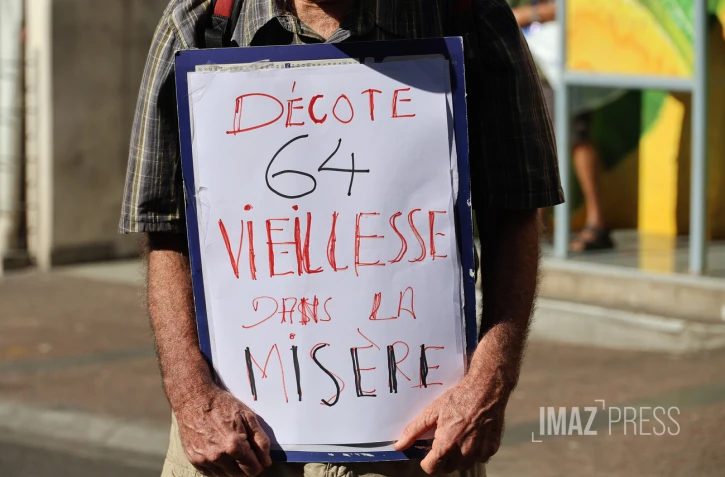 DÉCOTE
64
VIEILLESSE
DANS LA
MISÈRE
IMAZ PRESS